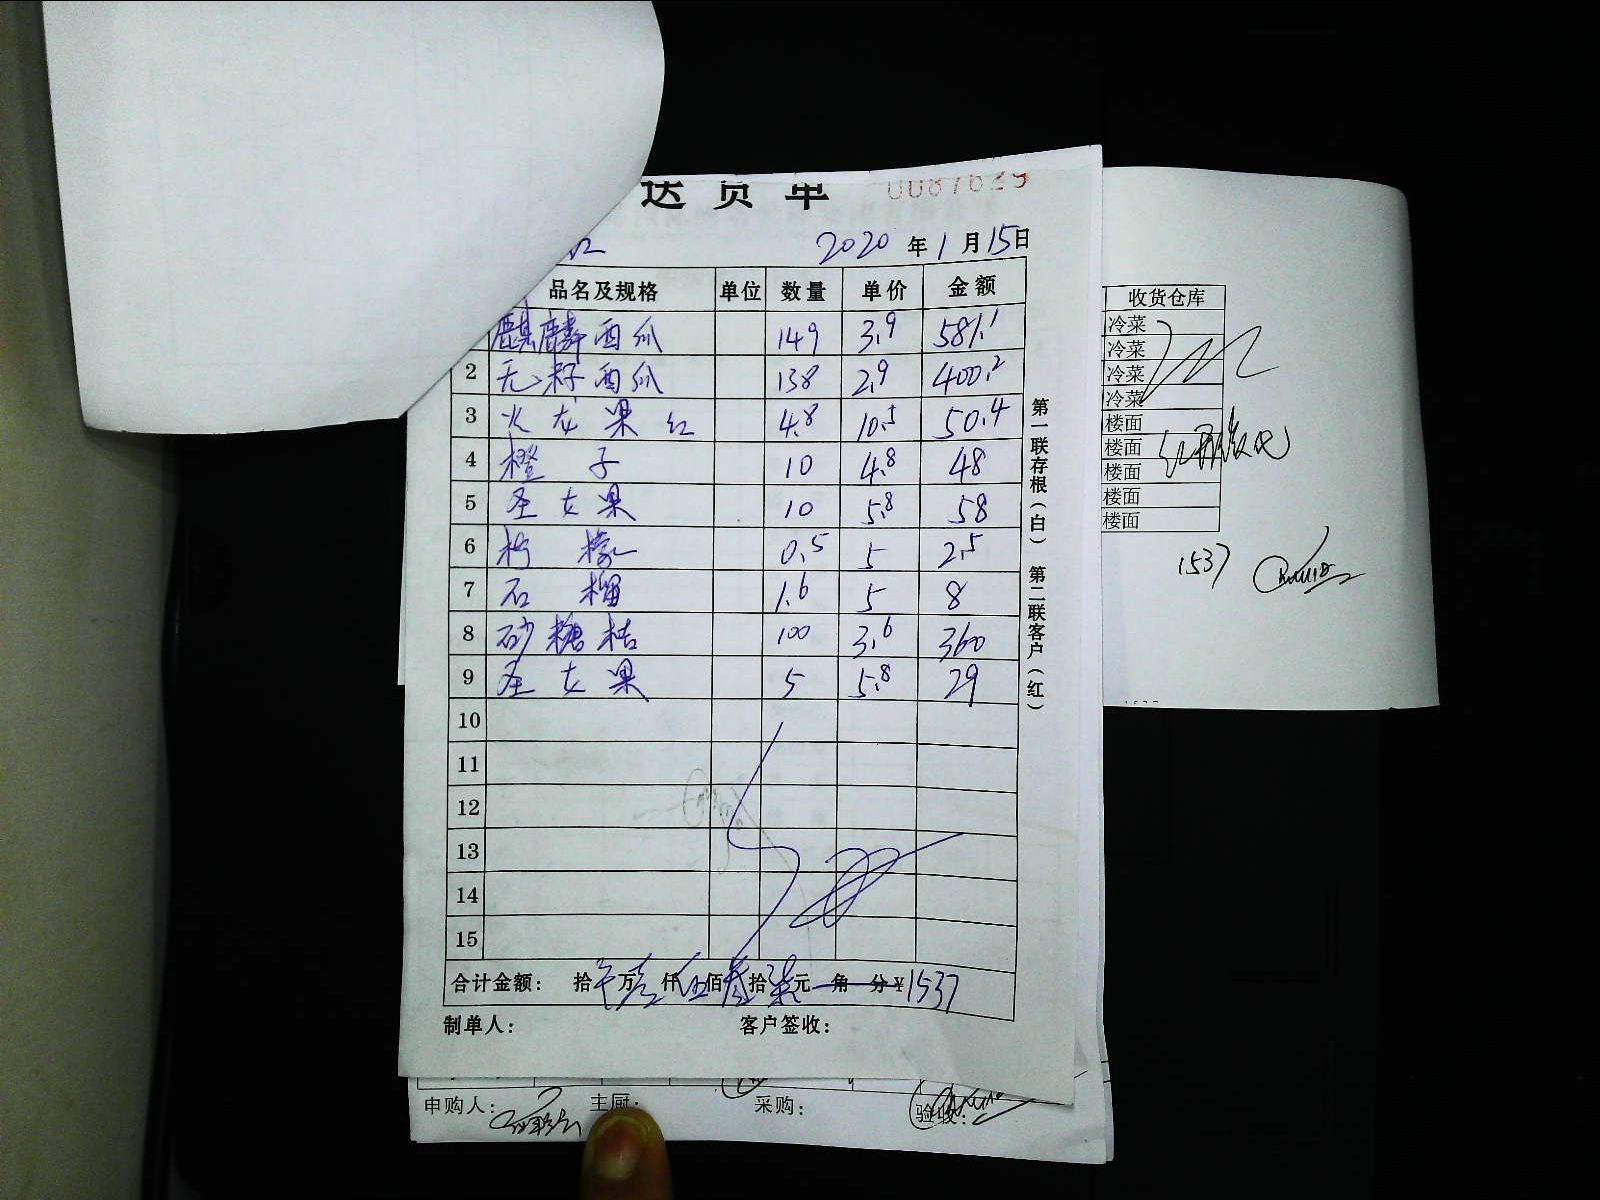 送货单 0087629
2020 年 1 月 15 日
品名及规格 单位 数量 单价 金额
麒麟西瓜 149 3.9 581.1
2 无籽西瓜 138 2.9 400.2
3 火龙果 红 4.8 10.5 50.4
4 橙子 10 4.8 48
5 圣女果 10 5.8 58
6 柠檬 0.5 5 2.5
7 石榴 1.6 5 8
8 砂糖桔 100 3.6 360
9 圣女果 5 5.8 29
10
11
12
13
14
15
合计金额： 拾 万壹仟伍佰叁拾柒元 角 分￥1537
制单人： 客户签收：
第一联存根（白） 第二联客户（红）
收货仓库
冷菜
冷菜
冷菜
冷菜
楼面
楼面
楼面
楼面
楼面
1537
申购人： 主厨： 采购： 验收：